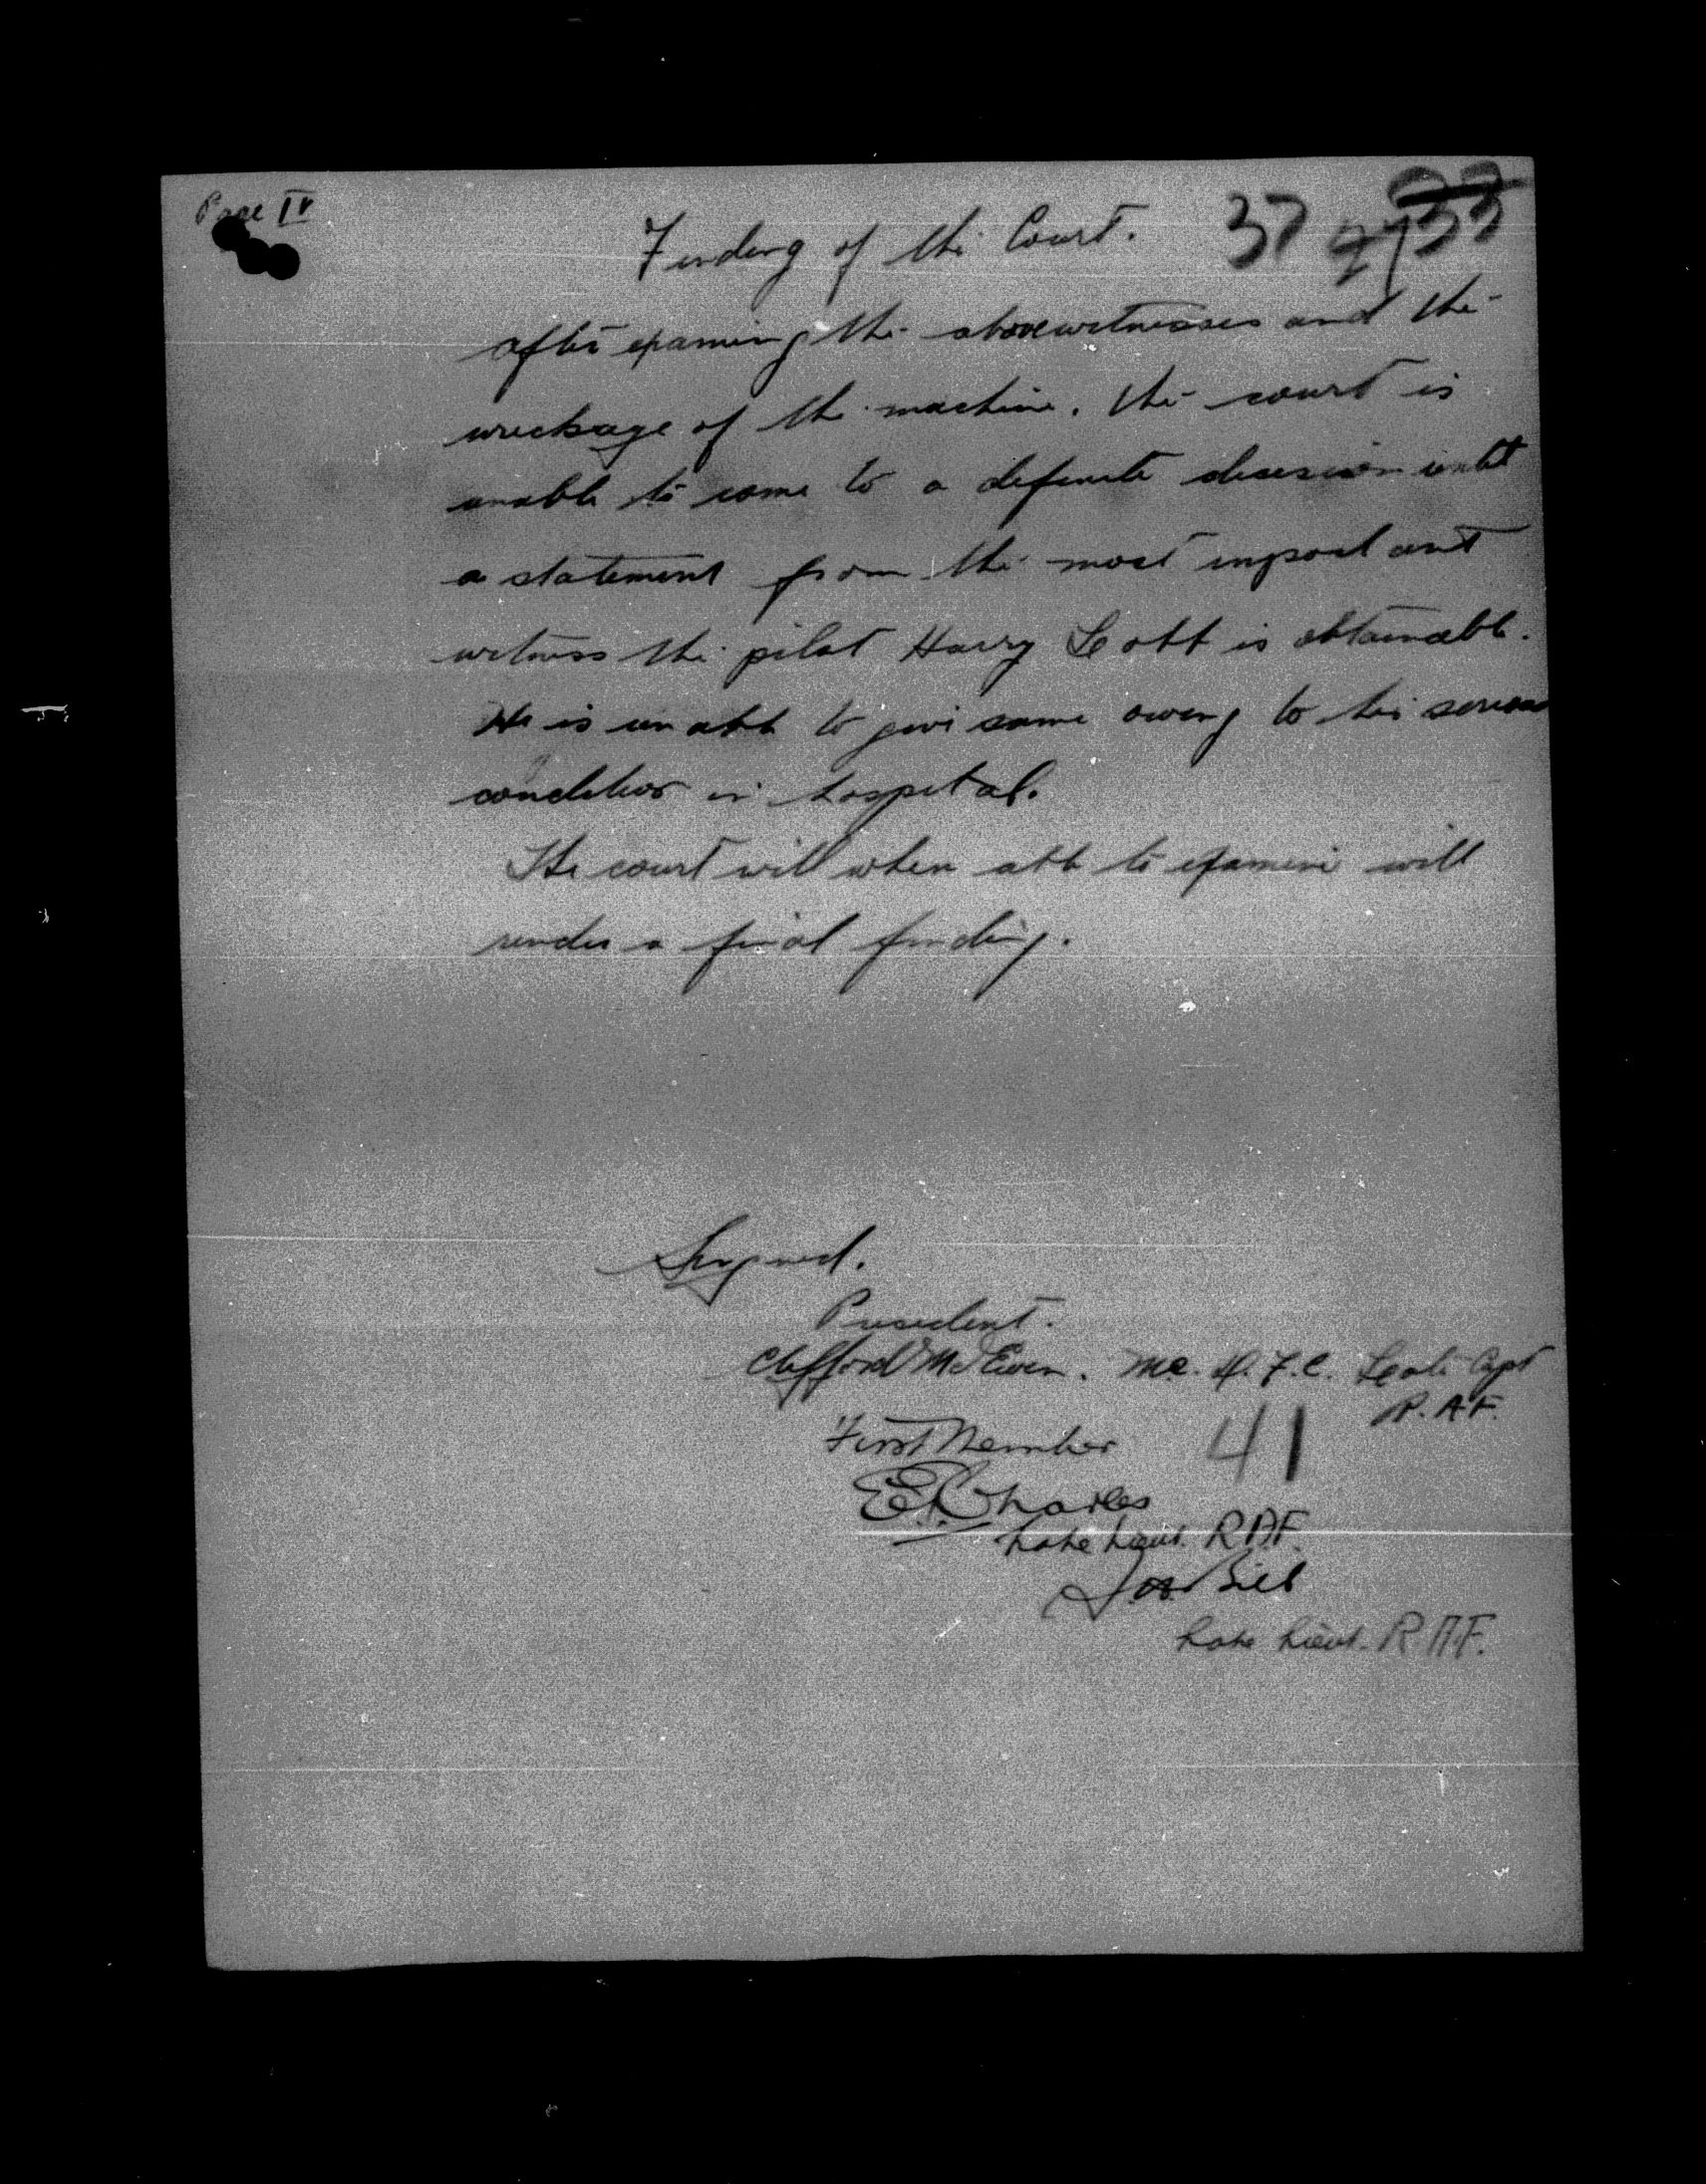 Page IV
Finding of the Court. 37
After examining the above witnesses and the
wreckage of the machine. the court is
unable to come to a definite decession until
a statement from the most important
witness the pilot Harry Scott is obtainable.
He is unable to give same owing to his serious
condition in hospital.
The court will when able to examine will
render a final finding.
Signed.
President.
Clifford McEwen. M.C. D.F.C. Late Capt
R.A.F.
First Member 41
E. Charles
Late Lieut. R.A.F.
Late Lieut. R.A.F.